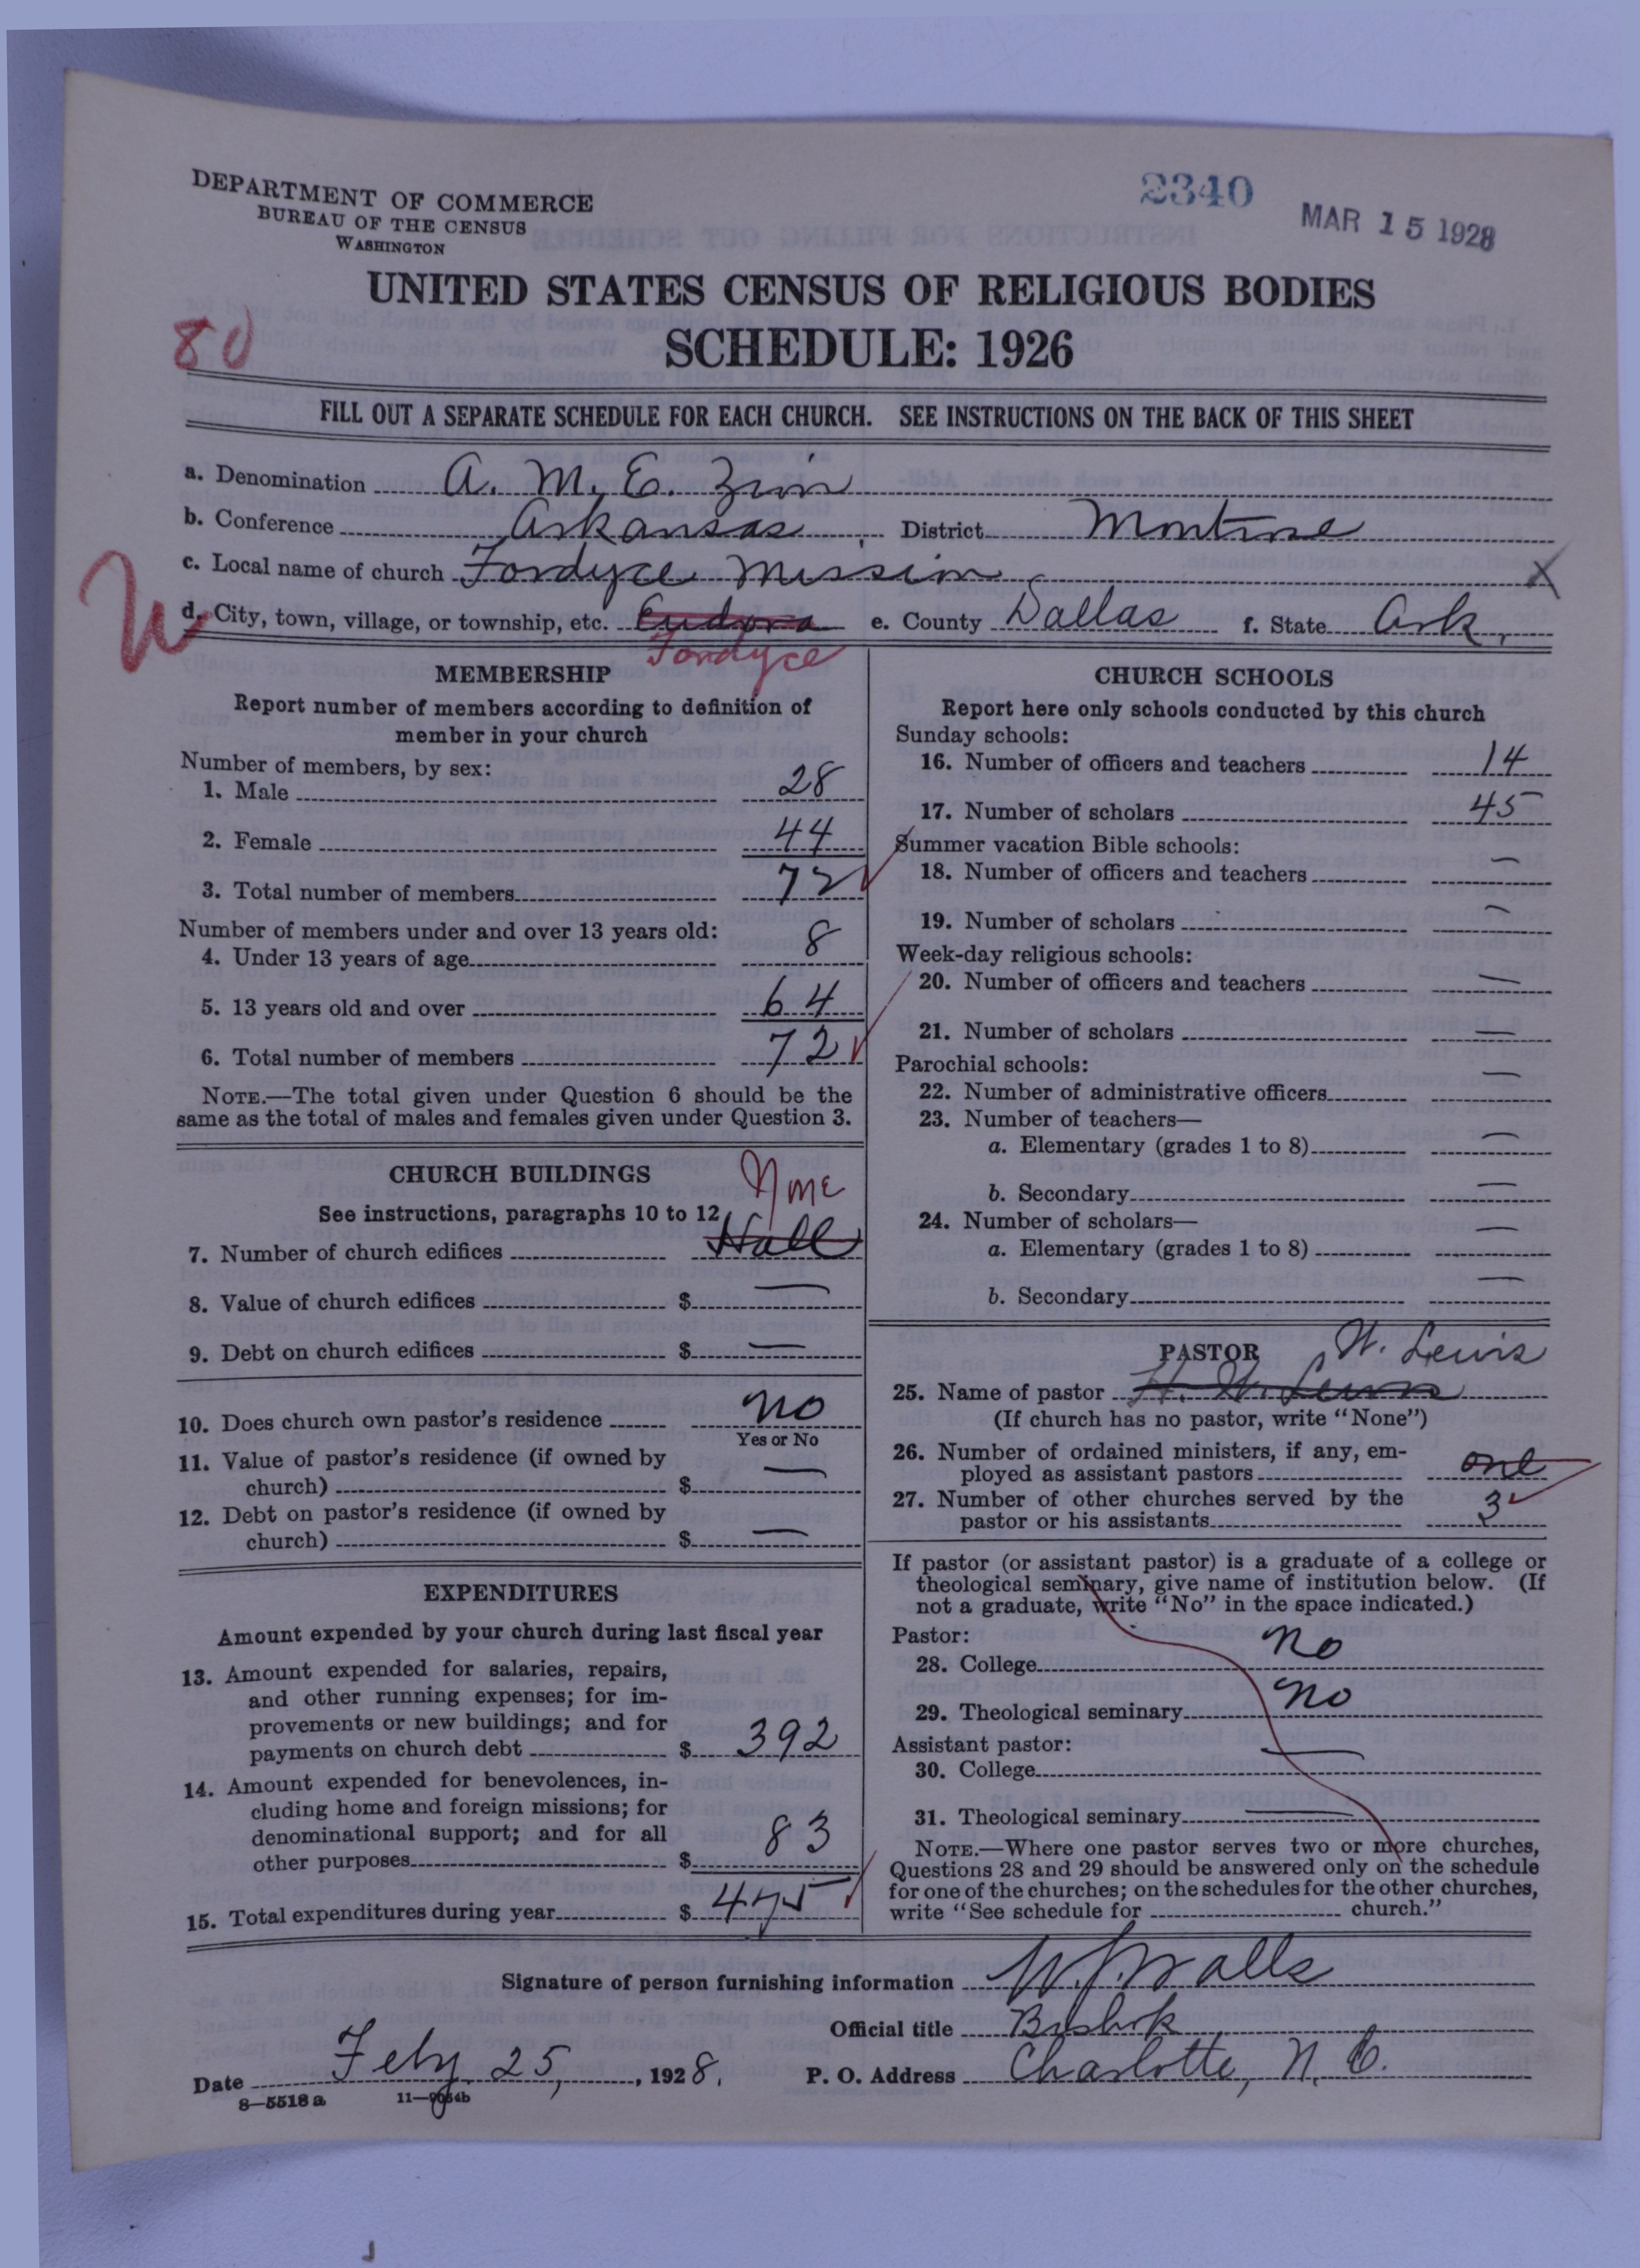 DEPARTMENT OF COMMERCE
BUREAU OF THE CENSUS
WASHINGTON
2340
MAR 15 1928
UNITED STATES CENSUS OF RELIGIOUS BODIES
SCHEDULE: 1926
80
FILL OUT A SEPARATE SCHEDULE FOR EACH CHURCH. SEE INSTRUCTIONS ON THE BACK OF THIS SHEET
a. Denomination A. M. E. Zion
b. Conference Arkansas District Montrose
c. Local name of church Fordyce Mission X
d. City, town, village, or township, etc. Eudora e. County Dallas f. State Ark.
Fordyce
MEMBERSHIP
Report number of members according to definition of
member in your church
Number of members, by sex:
1. Male 28
2. Female 44
3. Total number of members 72
Number of members under and over 13 years old:
4. Under 13 years of age 8
5. 13 years old and over 64
6. Total number of members 72
NOTE.—The total given under Question 6 should be the
same as the total of males and females given under Question 3.
CHURCH BUILDINGS
None
See instructions, paragraphs 10 to 12
7. Number of church edifices Hall
8. Value of church edifices $ —
9. Debt on church edifices $ —
10. Does church own pastor's residence No
Yes or No
11. Value of pastor's residence (if owned by
church) $ —
12. Debt on pastor's residence (if owned by
church) $ —
EXPENDITURES
Amount expended by your church during last fiscal year
13. Amount expended for salaries, repairs,
and other running expenses; for im-
provements or new buildings; and for
payments on church debt $ 392
14. Amount expended for benevolences, in-
cluding home and foreign missions; for
denominational support; and for all
other purposes $ 83
15. Total expenditures during year $ 475
CHURCH SCHOOLS
Report here only schools conducted by this church
Sunday schools:
16. Number of officers and teachers 14
17. Number of scholars 45
Summer vacation Bible schools:
18. Number of officers and teachers —
19. Number of scholars —
Week-day religious schools:
20. Number of officers and teachers —
21. Number of scholars —
Parochial schools:
22. Number of administrative officers —
23. Number of teachers—
a. Elementary (grades 1 to 8) —
b. Secondary —
24. Number of scholars—
a. Elementary (grades 1 to 8) —
b. Secondary —
PASTOR W. Lewis
25. Name of pastor H. W. Lewis
(If church has no pastor, write "None")
26. Number of ordained ministers, if any, em-
ployed as assistant pastors one
27. Number of other churches served by the
pastor or his assistants 3
If pastor (or assistant pastor) is a graduate of a college or
theological seminary, give name of institution below. (If
not a graduate, write "No" in the space indicated.)
Pastor:
28. College No
29. Theological seminary No
Assistant pastor:
30. College —
31. Theological seminary —
NOTE.—Where one pastor serves two or more churches,
Questions 28 and 29 should be answered only on the schedule
for one of the churches; on the schedules for the other churches,
write "See schedule for church."
Signature of person furnishing information W. J. Walls
Official title Bishop
Date Feby 25, 1928. P. O. Address Charlotte, N. C.
8—5518 a